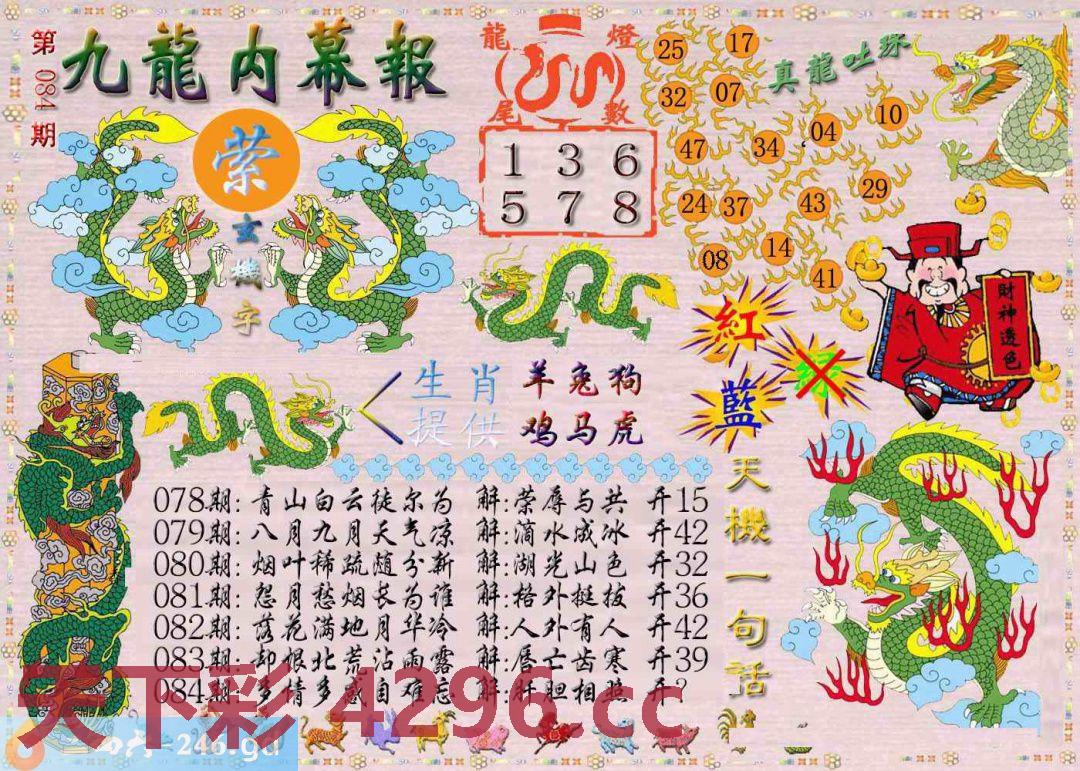 第084期
九龍内幕報
萦
玄機字
龍燈
尾數
1 3 6
5 7 8
真龍吐珠
25 17
32 07
10
04
47 34
29
24 37 43
14
08
41
財神透色
紅
綠
藍
生肖 羊兔狗
提供 鸡马虎
天機一句話
078期: 青山白云徒尔为 解:荣辱与共 开15
079期: 八月九月天气凉 解:滴水成冰 开42
080期: 烟叶稀疏随分新 解:湖光山色 开32
081期: 怨月愁烟长为谁 解:格外挺拔 开36
082期: 落花满地月华冷 解:人外有人 开42
083期: 却恨北荒沾雨露 解:唇亡齿寒 开39
084期: 多情多感自难忘 解:肝胆相照 开?
天下彩 4296.cc
=246.gd